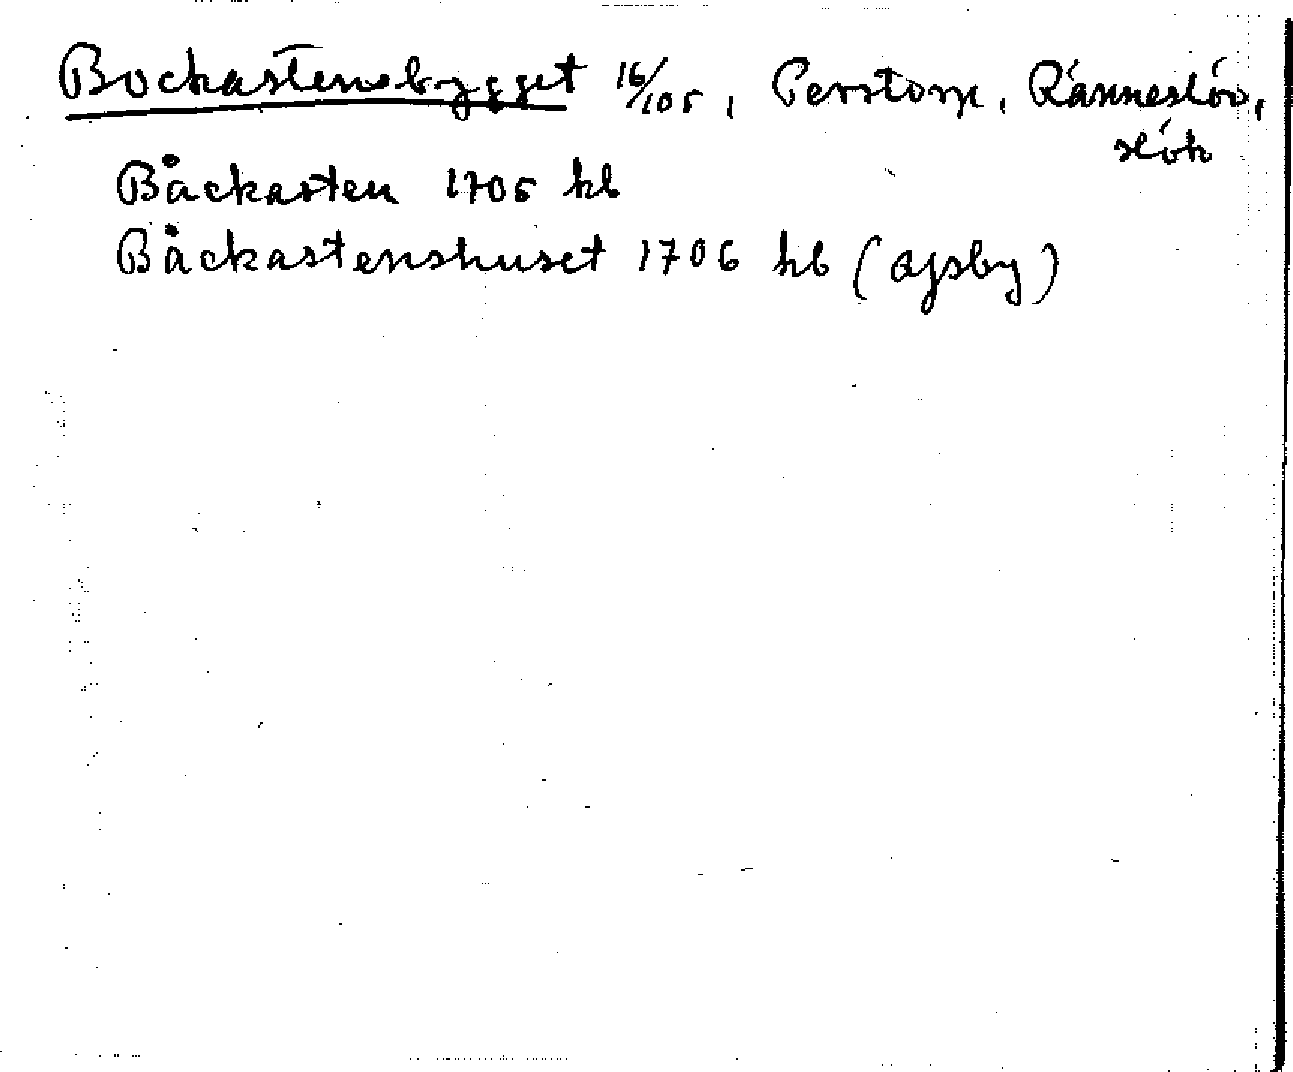 Bockastensbygget 16/105, Perstorp, Ränneslöv,
slöh
Båckasten 1705 kb
Båckastenshuset 1706 kb (ajsby)